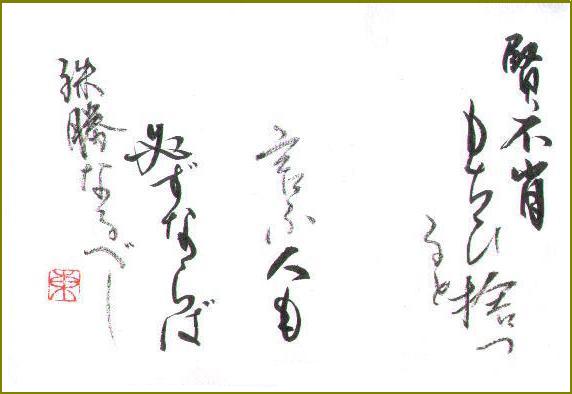 賢不肖
もちひ捨つ
ると
言ふ人も
必ずならば
殊勝なるべし
東